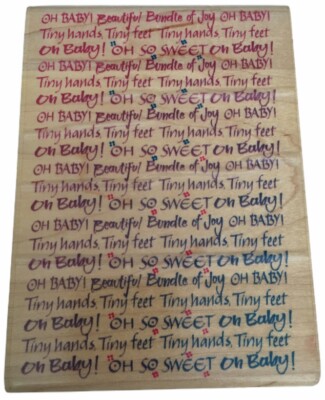 OH BABY! Beautiful Bundle of Joy OH BABY!
Tiny hands, Tiny feet Tiny hands, Tiny feet
Oh Baby! OH SO SWEET Oh Baby!
OH BABY! Beautiful Bundle of Joy OH BABY!
Tiny hands, Tiny feet Tiny hands, Tiny feet
Oh Baby! OH SO SWEET Oh Baby!
OH BABY! Beautiful Bundle of Joy OH BABY!
Tiny hands, Tiny feet Tiny hands, Tiny feet
Oh Baby! OH SO SWEET Oh Baby!
OH BABY! Beautiful Bundle of Joy OH BABY!
Tiny hands, Tiny feet Tiny hands, Tiny feet
Oh Baby! OH SO SWEET Oh Baby!
OH BABY! Beautiful Bundle of Joy OH BABY!
Tiny hands, Tiny feet Tiny hands, Tiny feet
Oh Baby! OH SO SWEET Oh Baby!
OH BABY! Beautiful Bundle of Joy OH BABY!
Tiny hands, Tiny feet Tiny hands, Tiny feet
Oh Baby! OH SO SWEET Oh Baby!
Tiny hands, Tiny feet Tiny hands, Tiny feet
Oh Baby! OH SO SWEET Oh Baby!